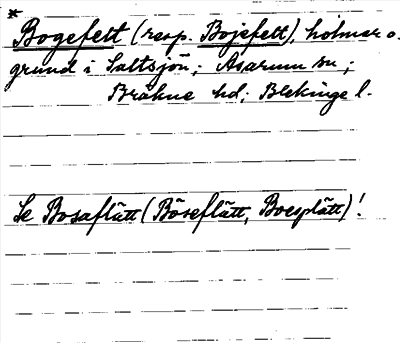 *
Bogefett (resp. Bojefett), holmar o.
grund i Saltsjön; Asarum sn;
Bräkne hd; Blekinge l.
Se Bosaflätt (Böseflätt, Boesplätt)!